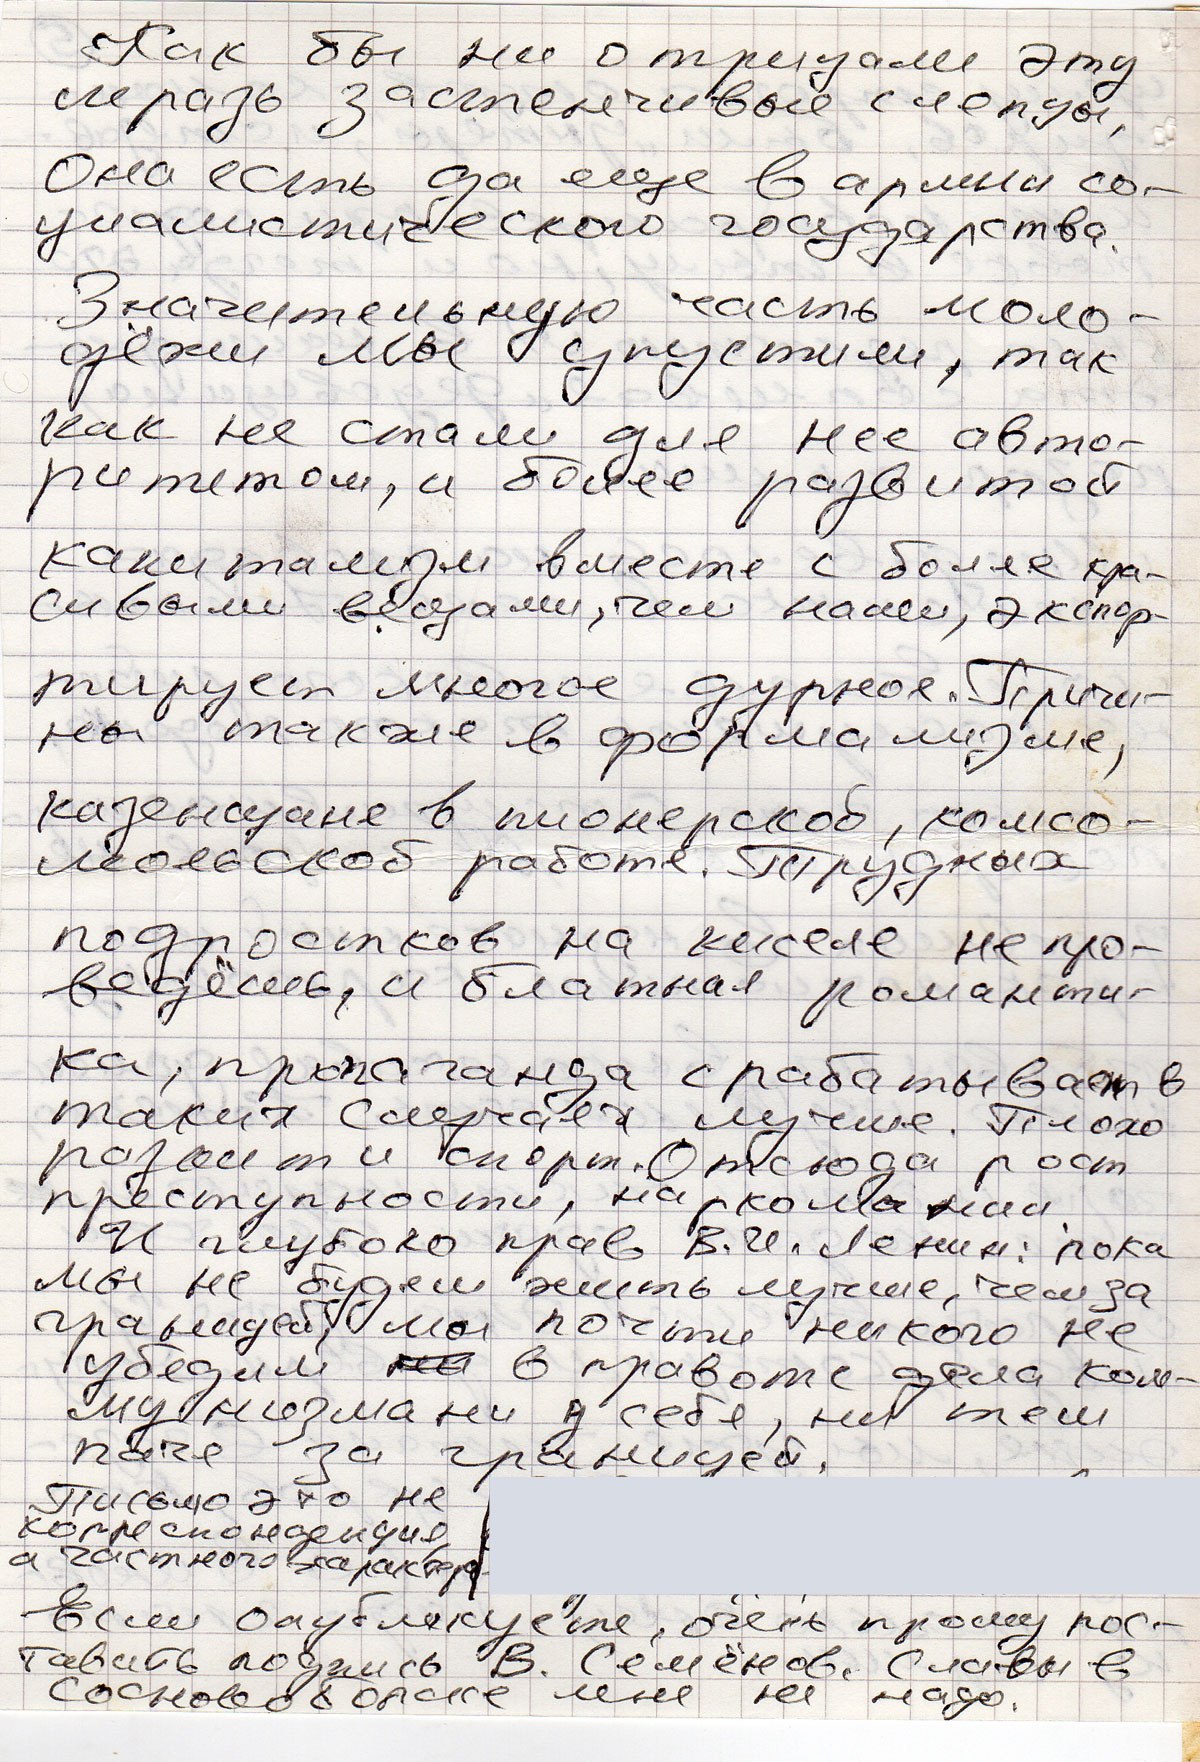 Как бы ни отрицали эту
мразь застенчивые слепцы,
Она есть да еще в армии со-
циалистического государства.
Значительную часть моло-
дёжи мы упустили, так
как не стали для нее авто-
ритетом, и более развитой
капитализм вместе с более кра-
сивыми вещами, чем наши, экспор-
тирует многое дурное. Причи-
ны также в формализме,
казенщине в пионерской, комсо-
мольской работе. Трудных
подростков на киселе не про-
ведёшь, и блатная романти-
ка, пропаганда срабатывает в
таких случаях лучше. Плохо
развит и спорт. Отсюда рост
преступности, наркомании
И глубоко прав В.И. Ленин: пока
мы не будем жить лучше, чем за
границей, мы почти никого не
убедим в правоте дела ком-
мунизма ни у себя, ни тем
паче за границей.
Письмо это не
корреспонденция,
а частного характера
Если опубликуете, очень прошу пос-
тавить подпись В. Семёнов. Славы в
Сосновоборске мне не надо.